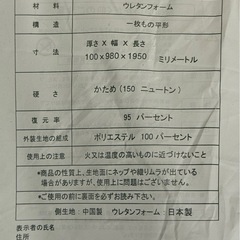 材料 ウレタンフォーム
構造 一枚もの平形
寸法 厚さ x 幅 x 長さ
100x980x1950 ミリメートル
硬さ かため(150 ニュートン)
復元率 95 パーセント
外装生地の組成 ポリエステル 100 パーセント
使用上の注意 火又は温度の高いものに近づけないこと
*商品の性質上、生地面にネップや織りムラが出ている
場合がありますが、使用上に問題はございません。
*ご使用の前に裏面を必ずお読みください。
側生地:中国製 ウレタンフォーム:日本製
表示者の氏名
住所